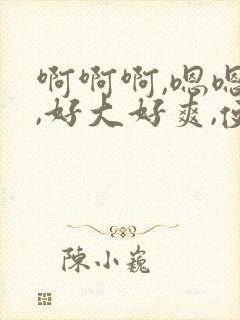 啊啊啊,嗯嗯
,好大好爽,
陈小巍